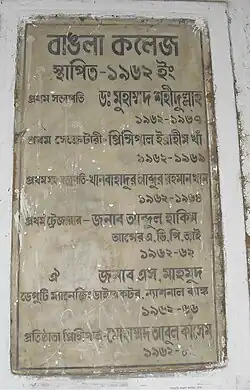 বাঙলা কলেজ
স্থাপিত-১৯৬২ ইং
প্রথম সভাপতি ডঃ মুহাম্মদ শহীদুল্লাহ
১৯৬২-১৯৬৭
প্রথম সেক্রেটারী-প্রিন্সিপাল ইব্রাহীম খাঁ
১৯৬২-১৯৬৯
প্রথম সহ সভাপতি-খানবাহাদুর আব্দুর রহমান খান
১৯৬২-১৯৬৪
প্রথম ট্রেজারার-জনাব আব্দুল হাকিম
এ.ডি.পি.আই
১৯৬২-৬২
ঐ জনাব এস, মাহমুদ
ডেপুটি ম্যানেজিং ডাইরেকটর, ন্যাশনাল ব্যাঙ্ক
১৯৬২-৬৬
প্রতিষ্ঠাতা প্রিন্সিপাল-মোহাম্মদ আবুল কাসেম
১৯৬২-